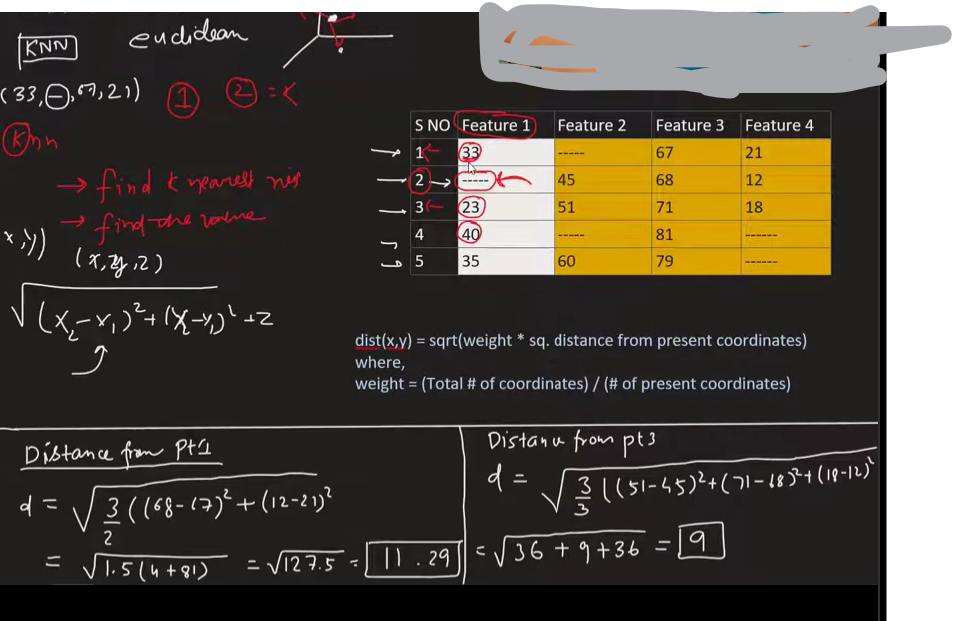 KNN euclidean
(33, —, 67, 21) 1 2 = K
Knn
→ find K nearest
→ find the value
x, y)
(x, y, z)
√(x₂ – x₁)² + (y₂ – y₁)² + z
S NO Feature 1 Feature 2 Feature 3 Feature 4
1 33 ----- 67 21
2 ----- 45 68 12
3 23 51 71 18
4 40 ----- 81 ------
5 35 60 79 ------
dist(x,y) = sqrt(weight * sq. distance from present coordinates)
where,
weight = (Total # of coordinates) / (# of present coordinates)
Distance from Pt1
d = √3/2 ((68-67)² + (12-21)²
= √1.5(4+81) = √127.5 = 11.29
Distance from pt3
d = √3/3 ((51-45)² + (71-68)² + (18-12)²
= √36 + 9 + 36 = 9